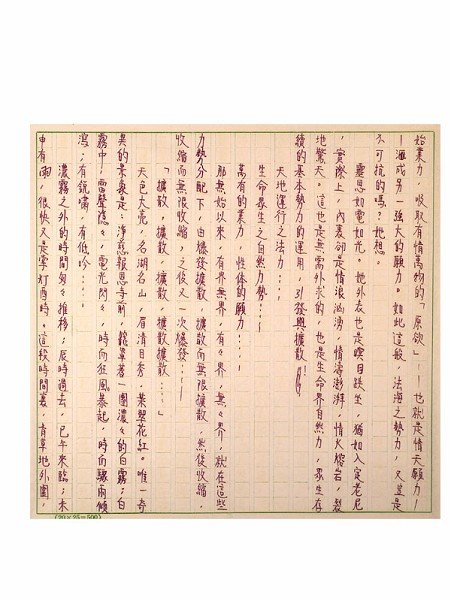 始業力，吸取有情萬物的「原欲」——也就是情天願力，
——匯成另一強大的願力。如此這般，法海之勢力，又豈是
不可抗的嗎？她想。
靈思如電如光。她外表也是瞑目趺坐，猶如入定老尼
，實際上，內裏卻是情浪洶湧，情濤澎湃，情火熔岩，裂
地驚天。這也是無需外求的，也是生命界自然力，眾生存
續的基本勢力的運用，引發與擴散！
天地運行之法力……
生命衆生之自然力勢……
萬有的業力，性体的願力……
那無始以來，有界無界，有々界，無々界，就在這些
力勢分配下，由爆發擴散，擴散而無限擴散，然後收縮，
收縮而無限收縮，之後又一次爆發……
「擴散，擴散，擴散擴散……」
天色大亮，名湖名山，眉清目秀，葉翠花紅。唯一奇
異的景象是：淨慈報恩寺前，籠罩著一團濃々的白霧；白
霧中，雷聲隱々，電光閃々，時而狂風暴起，時而驟雨傾
瀉；有銳嘯，有低吟……
濃霧之外的時間匆々推移；辰時過去，巳午來臨；未
申有雨，很快又是掌灯酉時。這段時間裏，青草地外圍，
(20×25=500)